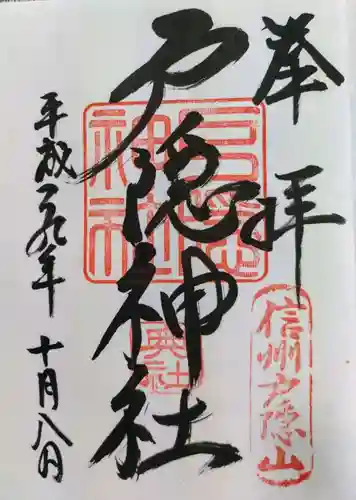 奉拝
信州戸隠山
戸隠神社
奥社
平成二九年 十月八日